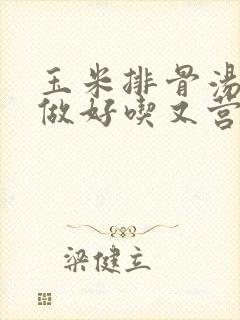 玉米排骨汤
做好喫又营
梁健立